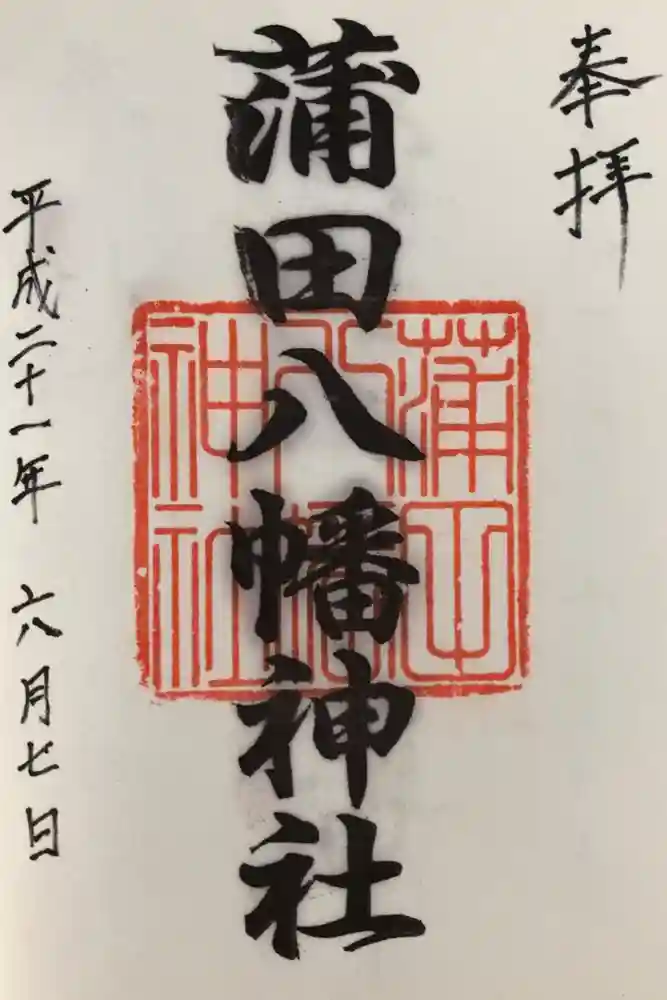 奉拝
蒲田八幡神社
蒲田
八幡
神社
平成二十一年 六月七日